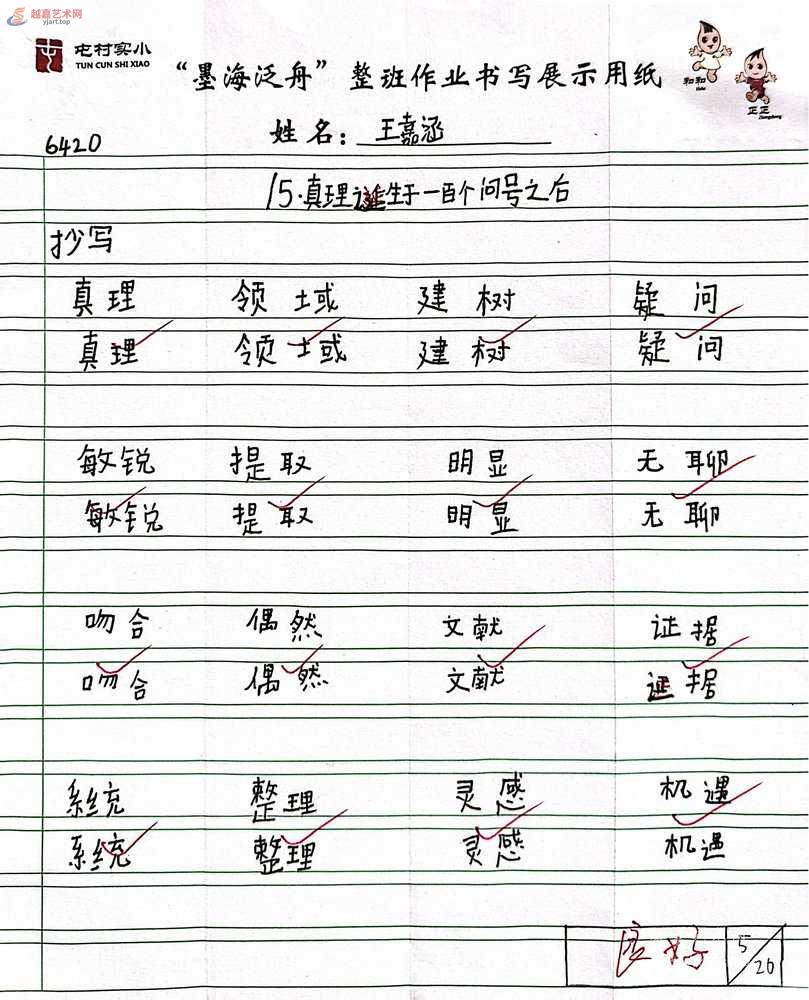 越嘉艺术网
yjart.top
屯村实小
TUN CUN SHI XIAO
“墨海泛舟”整班作业书写展示用纸
和和
正正
6420 姓名：王嘉涵
15.真理诞生于一百个问号之后
抄写
真理 领域 建树 疑问
真理 领域 建树 疑问
敏锐 提取 明显 无聊
敏锐 提取 明显 无聊
吻合 偶然 文献 证据
吻合 偶然 文献 证据
系统 整理 灵感 机遇
系统 整理 灵感 机遇
良好 5/20